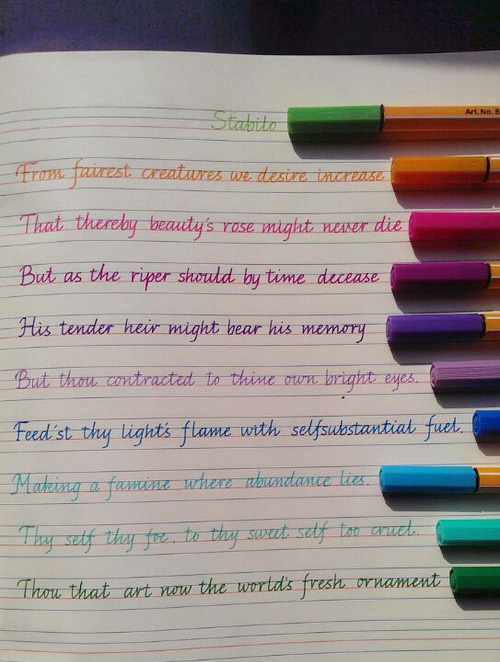 Stabilo
Art. No. 8
From fairest creatures we desire increase
That thereby beauty's rose might never die
But as the riper should by time decease
His tender heir might bear his memory
But thou contracted to thine own bright eyes.
Feed'st thy light's flame with selfsubstantial fuel.
Making a famine where abundance lies.
Thy self thy foe, to thy sweet self too cruel.
Thou that art now the world's fresh ornament